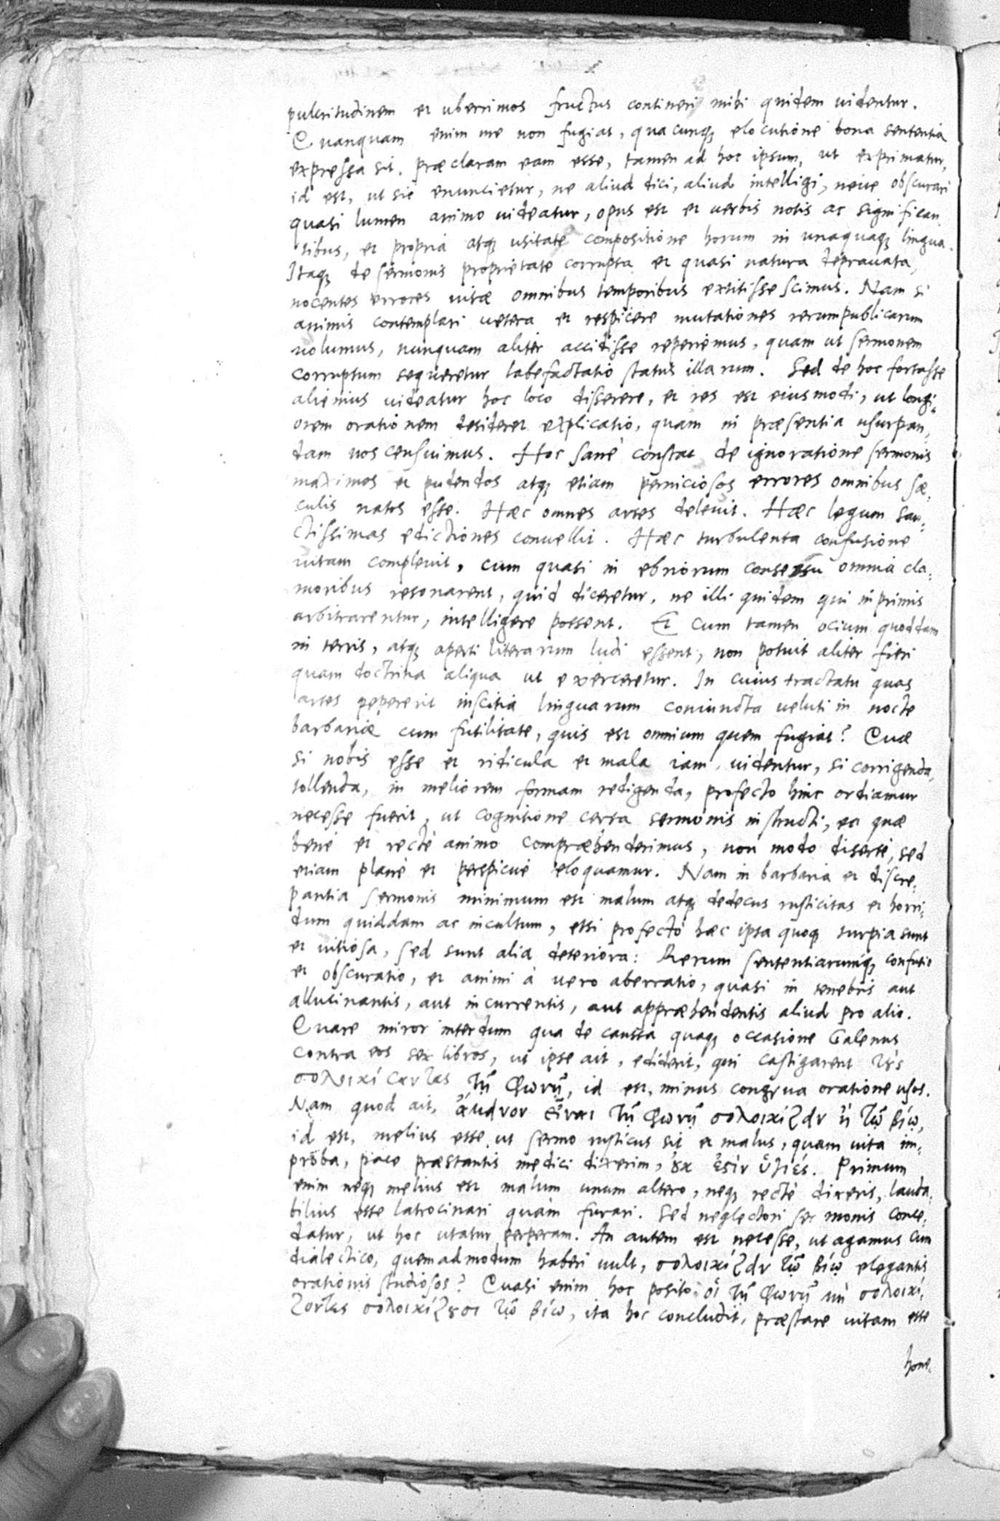 pulcritudinem et uberrimos fructus contineri mihi quidem uidentur.
Quanquam enim me non fugiat, quacunq; elocutione bona sententia
expressa sit, præclaram eam esse, tamen ad hoc ipsum, ut exprimatur,
id est, ut sic enuncietur, ne aliud dici, aliud intelligi, neue obscurari
quasi lumen animo uideatur, opus est et uerbis notis ac significan
tibus, et propria atq; usitate compositione horum in unaquaq; lingua.
Itaq; de sermonis proprietate corrupta et quasi natura deprauata,
nocentes errores uitæ omnibus temporibus extitisse scimus. Nam si
animis contemplari uetera et respicere mutationes rerumpublicarum
uolumus, nunquam aliter accidisse reperiemus, quam ut sermonem
corruptum sequeretur labefactatio status illarum. Sed de hoc fortasse
alienius uideatur hoc loco disserere, et res est eiusmodi, ut longi,
orem orationem desideret explicatio, quam in præsentia usurpan,
dam nos censuimus. Hoc sanè constat de ignoratione sermonis
maximos et pudendos atq; etiam perniciosos errores omnibus sæ,
culis natos esse. Hæc omnes artes deleuit. Hæc legum san,
ctissimas edictiones conuellit. Hæc turbulenta confusione
uitam compleuit, cum quasi in ebriorum consessu omnia cla,
moribus resonarent, quid diceretur, ne illi quidem qui inprimis
arbitrarentur, intelligere possent. Et cum tamen ocium quoddam
in terris, atq; aperti literarum ludi essent, non potuit aliter fieri
quam doctrina aliqua ut exerceretur. In cuius tractatu quas
artes pepererit inscitia linguarum coniuncta ueluti in nocte
barbariæ cum futilitate, quis est omnium quem fugiat? Quæ
si nobis esse et ridicula et mala iam uidentur, si corrigenda,
tollenda, in meliorem formam redigenda, profecto hinc ordiamur
necesse fuerit, ut cognitione certa sermonis instructi, ea quæ
bene et rectè animo compræhenderimus, non modo disertè, sed
etiam planè et perspicuè eloquamur. Nam in barbaria et discre,
pantia sermonis minimum est malum atq; dedecus rusticitas et horri,
dum quiddam ac incultum, etsi profectò hæc ipsa quoq; turpia sunt
et uitiosa, sed sunt alia deteriora: Rerum sententiarumq; confusio
et obscuratio, et animi à uero aberratio, quasi in tenebris aut
allucinantis, aut incurrentis, aut appræhendentis aliud pro alio.
Quare miror interdum qua de caussa quaq; occasione Galenus
contra eos sex libros, ut ipse ait, ediderit, qui castigarent τὰς
σολοικίζοντας τῇ φωνῇ, id est, minus congrua oratione usos.
Nam quod ait, ἄμεινον εἶναι τῇ φωνῇ σολοικίζειν ἢ τῷ βίῳ,
id est, melius esse ut sermo rusticus sit et malus, quam uita im,
proba, pace præstantis medici dixerim, οὐκ ἐστὶν ὑγιές. Primum
enim neq; melius est malum unum altero, neq; rectè dixeris, lauda,
bilius esse latrocinari quàm furari. Sed neglectori sermonis conce,
datur, ut hoc utatur perperam. An autem est necesse, ut agamus cum
dialectico, quemadmodum haberi uult, σολοικίζειν τῷ βίῳ elegantis
orationis studiosos? Quasi enim hoc posito, οἱ τῇ φωνῇ μὴ σολοικί,
ζοντες σολοικίζουσι τῷ βίῳ, ita hoc concludit, præstare uitam esse
hone,